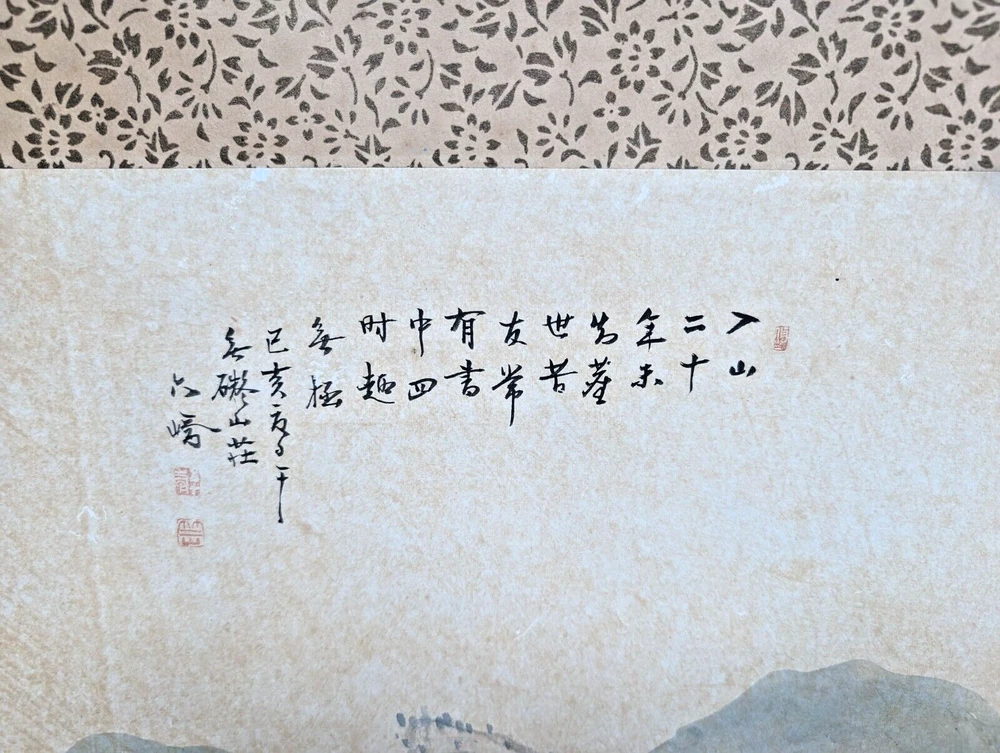 入山
二十
年未
为塵
世苦
友常
有書
中四
时趣
無極
己亥夏日于
無礙山莊
六嶠